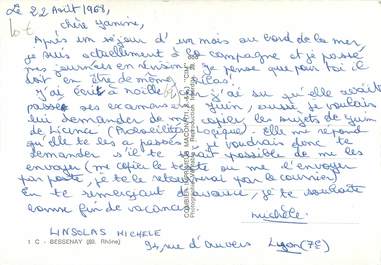 Le 22 Août 1968,
Chère Janine,
Après un séjour d'un mois au bord de la mer,
je suis actuellement à la campagne et je passe
mes journées en révisions. Je pense que pour toi il
doit en être de même, hélas!
J'ai écrit à Noëlle, j'ai su qu'elle avait
passé ses examens en Juin, aussi je voulais
lui demander de me copier les sujets de Juin
de Licence (Probabilités Logique). Elle me répond
qu'elle te les a passés. Je voudrais donc te
demander s'il te serait possible de me les
envoyer (me copier le texte ou me l'envoyer
par poste, je te le retournerai par le courrier)
En te remerciant d'avance, je te souhaite
bonne fin de vacances.
Michèle.
LINSOLAS MICHELE
94, rue d'Anvers Lyon (7E)
1 C - BESSENAY (69. Rhône)
COMBIER IMPRIMEUR MACON